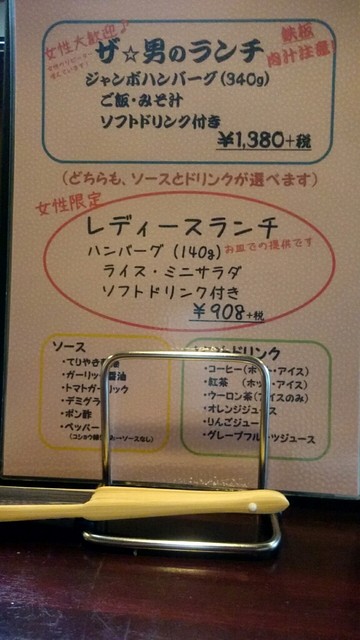 女性大歓迎♪
ザ☆男のランチ
鉄板
肉汁注意!
ジャンボハンバーグ(340g)
ご飯・みそ汁
ソフトドリンク付き
¥1,380+税
(どちらも、ソースとドリンクが選べます)
女性限定
レディースランチ
ハンバーグ(140g)お皿での提供です
ライス・ミニサラダ
ソフトドリンク付き
¥908+税
ソース
・てりやき
・ガーリック醤油
・トマトガーリック
・デミグラ
・ポン酢
・ペッパー
ドリンク
・コーヒー(ホット・アイス)
・紅茶 (ホット・アイス)
・ウーロン茶(アイスのみ)
・オレンジジュース
・りんごジュース
・グレープフルーツジュース